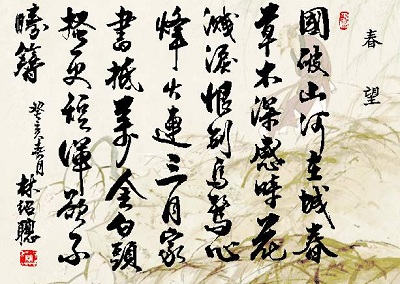 春望
國破山河在城春
草木深感時花
濺淚恨別鳥驚心
烽火連三月家
書抵萬金白頭
搔更短渾欲不
勝簪
癸亥春月
林紹聰